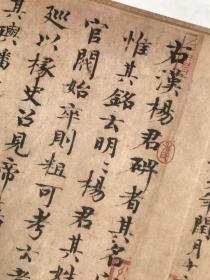 右漢楊君碑者其名
惟其銘云明明楊君其姓
官閥始卒則粗可考云
廵以掾史召見帝
其輿
閏月